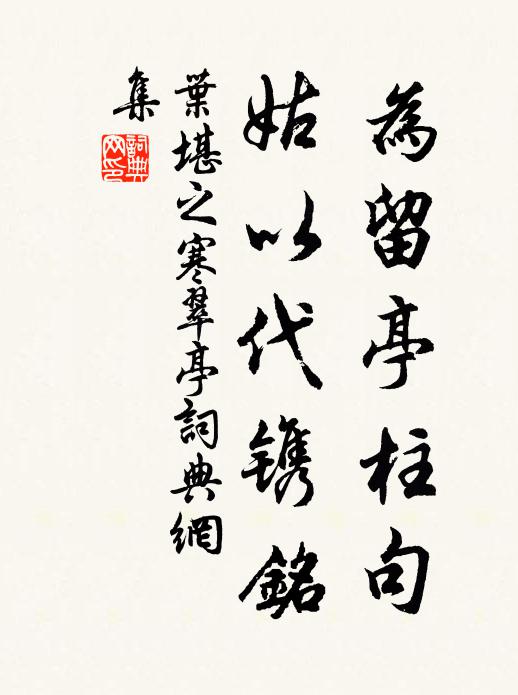 為留亭柱句
姑以代鐫銘
葉堪之寒翠亭詞典網
集
詞典
网印